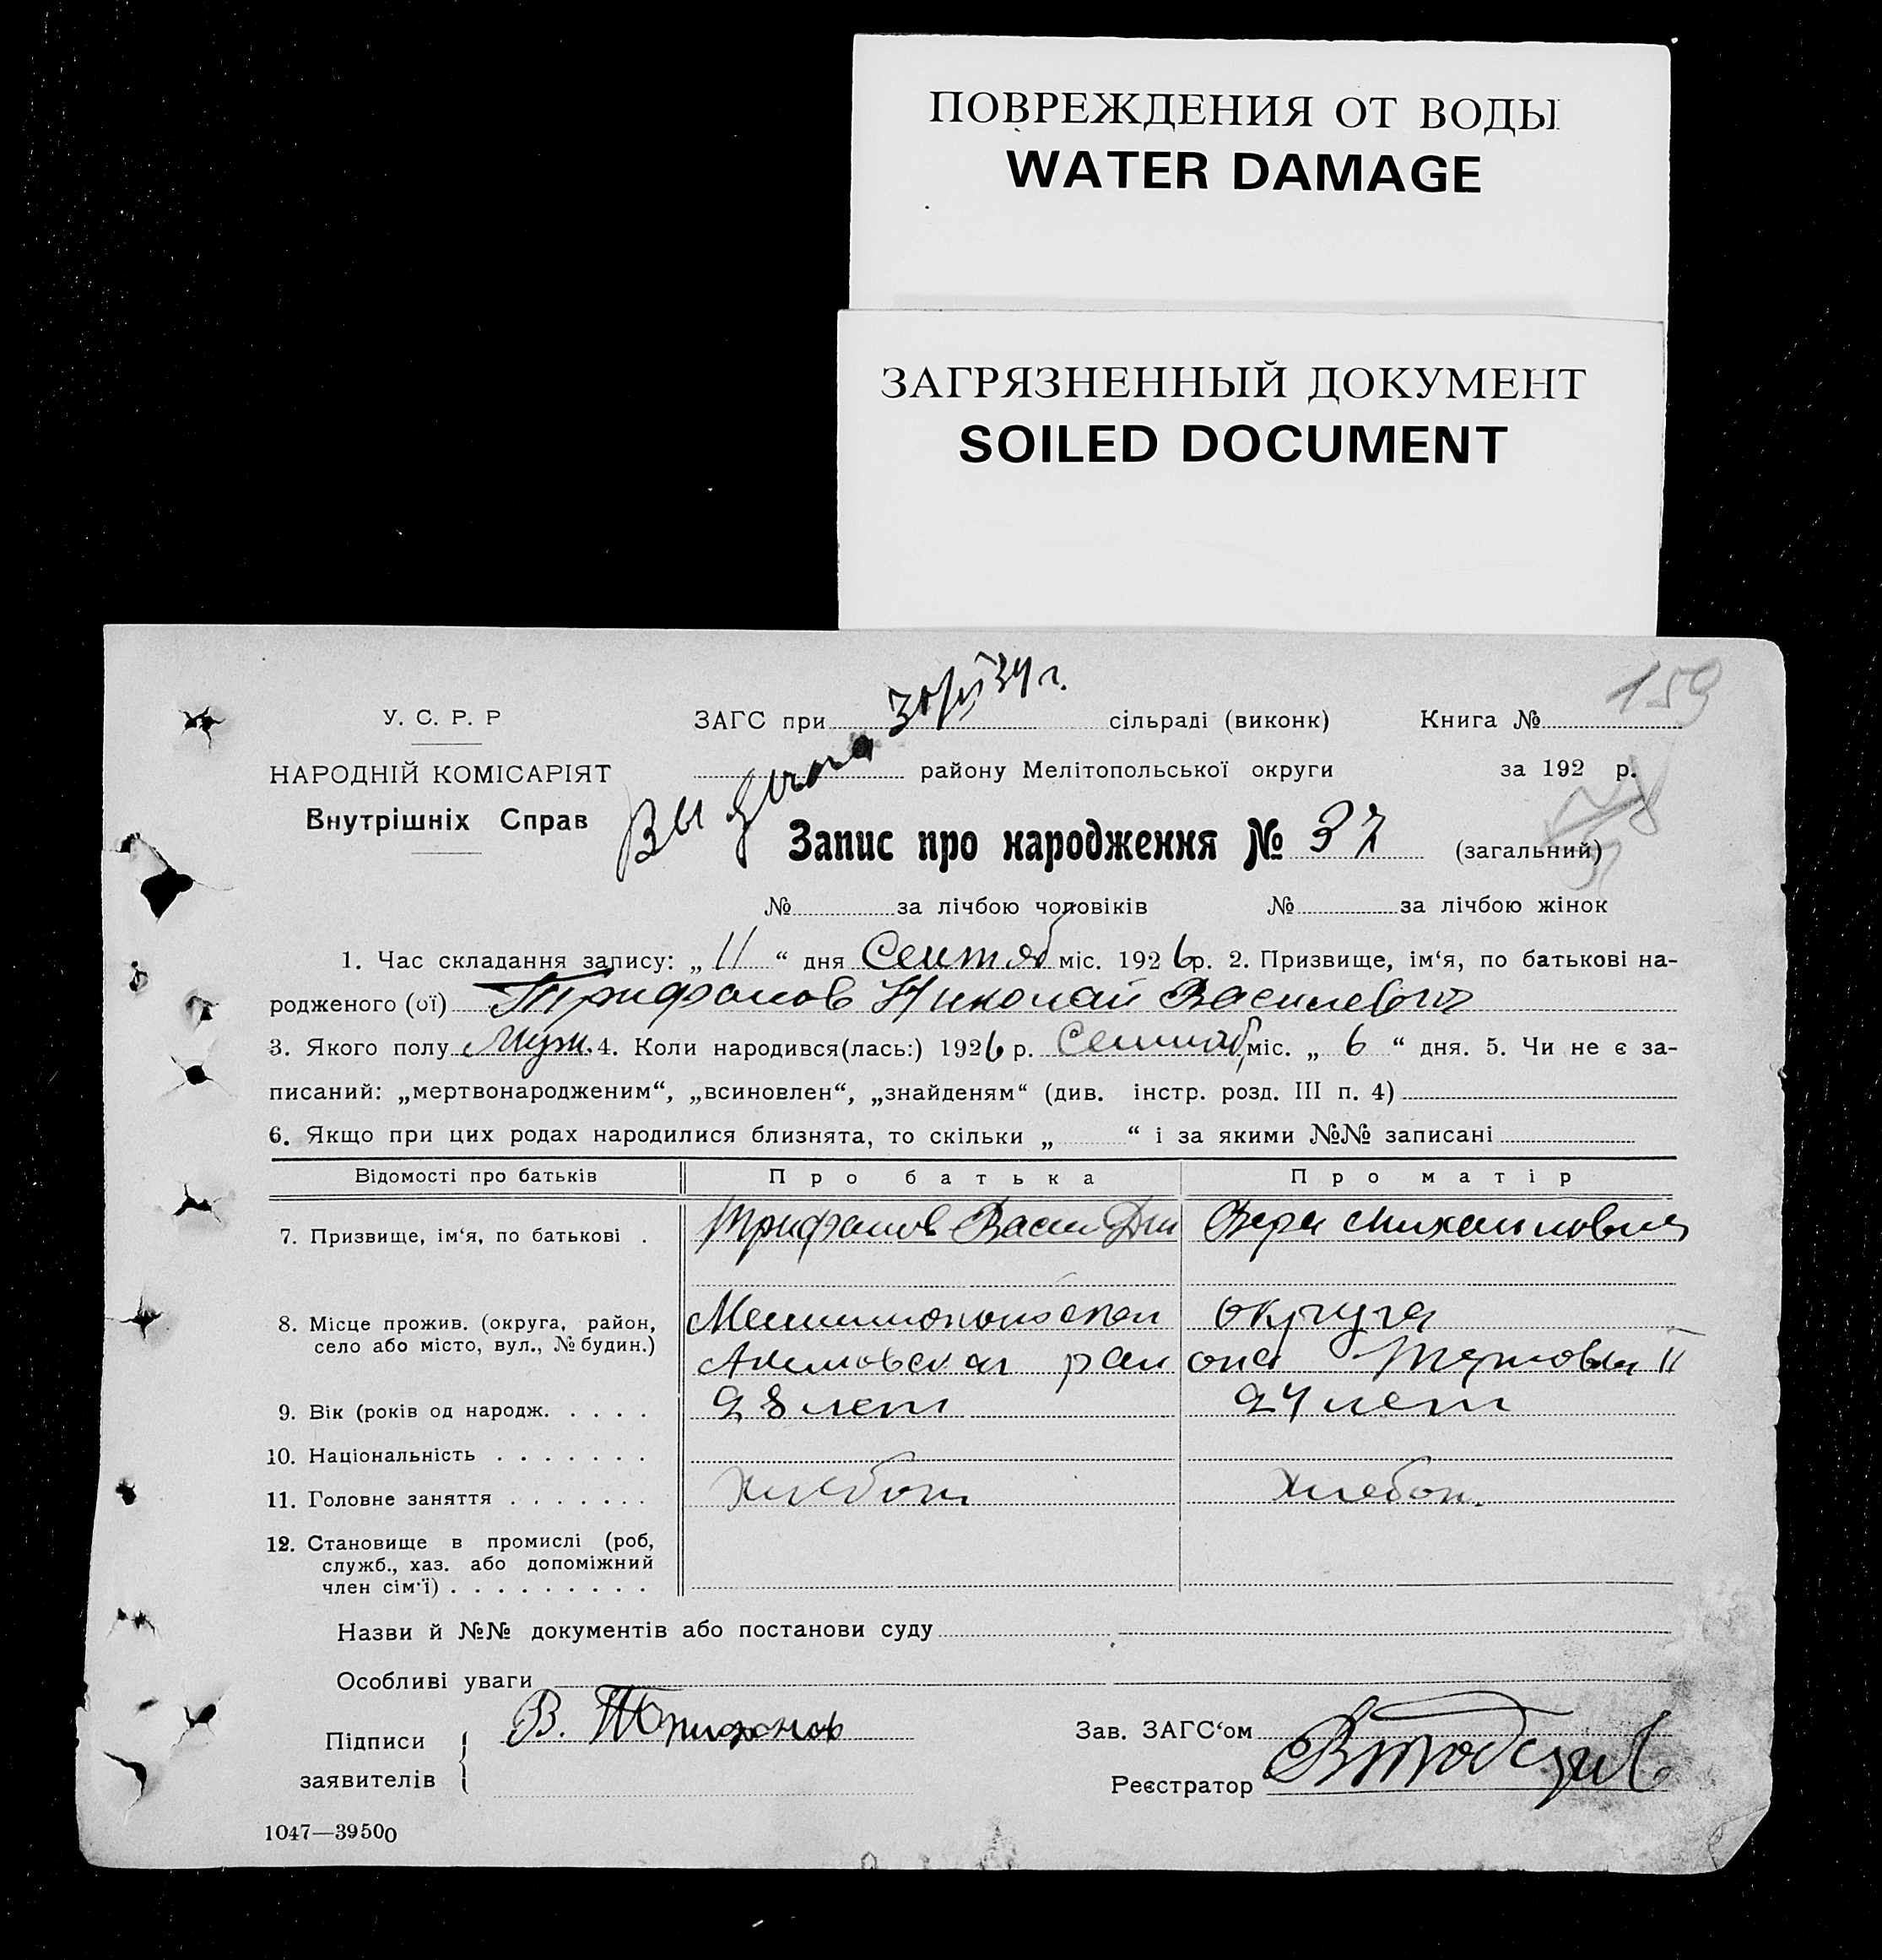 ПОВРЕЖДЕНИЯ ОТ ВОДЫ
WATER DAMAGE
ЗАГРЯЗНЕННЫЙ ДОКУМЕНТ
SOILED DOCUMENT
159
У. С. Р. Р
ЗАГС при сільраді (виконк) Книга №
НАРОДНІЙ КОМІСАРІЯТ
району Мелітопольської округи за 192 р.
Внутрішніх Справ
Выдано 34 г.
Запис про народження № 37 (загальний)
№ за лічбою чоловіків № за лічбою жінок
1. Час складання запису: „ 11 “ дня Сентяб міс. 1926 р. 2. Призвище, ім‘я, по батькові на-
родженого (ої) Трифонов Николай Василевич
3. Якого полу Муж. 4. Коли народився(лась:) 1926 р. Сентяб міс. „ 6 “ дня. 5. Чи не є за-
писаний: „мертвонародженим“, „всиновлен“, „знайденям“ (див. інстр. розд. III п. 4)
6. Якщо при цих родах народилися близнята, то скільки „ “ і за якими №№ записані
Відомості про батьків Про батька Про матір
7. Призвище, ім‘я, по батькові . Трифонов Васил Дм Вера Михаиловна
8. Місце прожив. (округа, район, Мелитопольская округа
село або місто, вул., № будин.) Акимовская рай она Терновка II
9. Вік (років од народж. . . . . 28 лет 24 лет
10. Національність . . . . . . .
11. Головне заняття . . . . . . . Хлебоп Хлебоп.
12. Становище в промислі (роб,
служб., хаз. або допоміжний
член сім‘ї) . . . . . . . . .
Назви й №№ документів або постанови суду
Особливі уваги
Підписи заявителів В. Трифонов
Зав. ЗАГС‘ом
Реєстратор
1047—39500